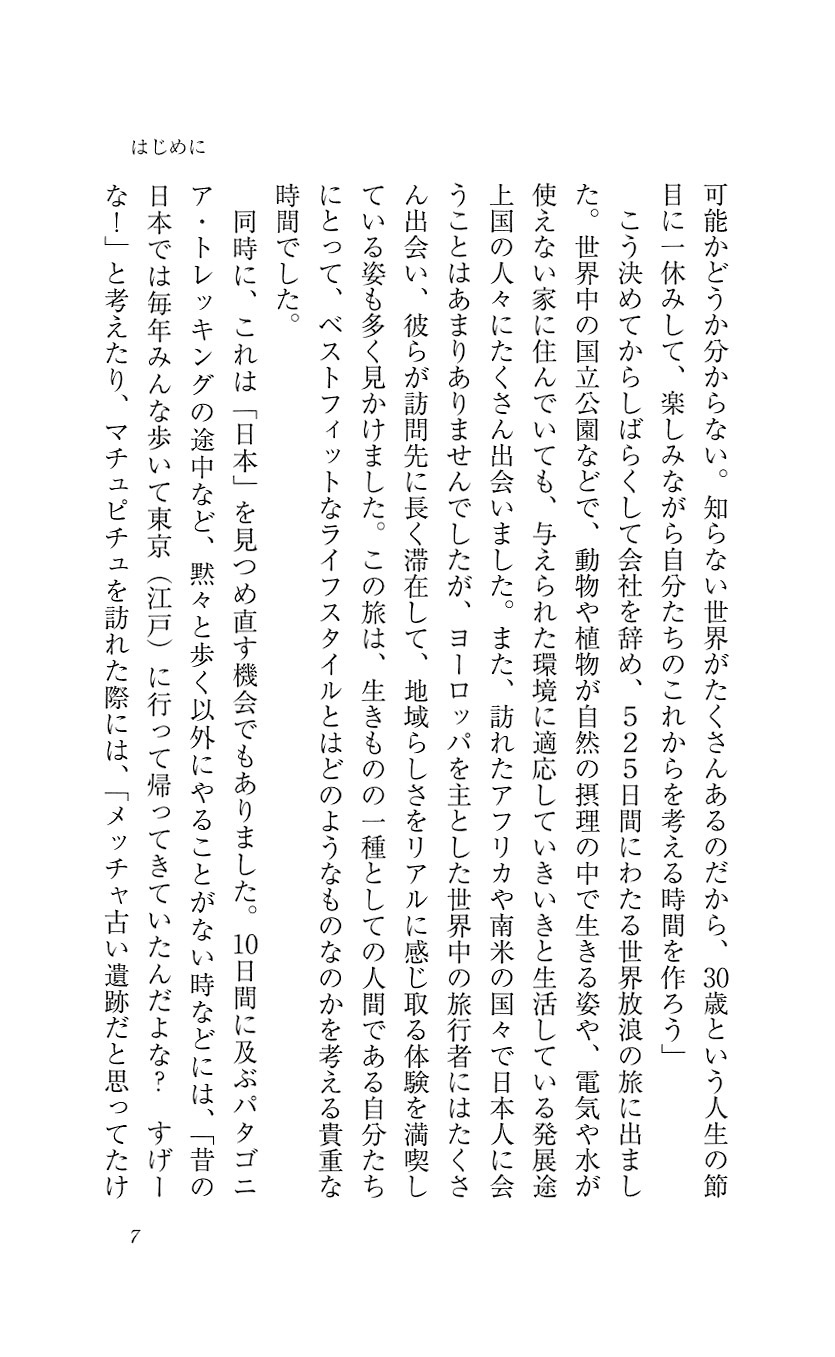 はじめに
可能かどうか分からない。知らない世界がたくさんあるのだから、30歳という人生の節
目に一休みして、楽しみながら自分たちのこれからを考える時間を作ろう」
こう決めてからしばらくして会社を辞め、525日間にわたる世界放浪の旅に出まし
た。世界中の国立公園などで、動物や植物が自然の摂理の中で生きる姿や、電気や水が
使えない家に住んでいても、与えられた環境に適応していきいきと生活している発展途
上国の人々にたくさん出会いました。また、訪れたアフリカや南米の国々で日本人に会
うことはあまりありませんでしたが、ヨーロッパを主とした世界中の旅行者にはたくさ
ん出会い、彼らが訪問先に長く滞在して、地域らしさをリアルに感じ取る体験を満喫し
ている姿も多く見かけました。この旅は、生きものの一種としての人間である自分たち
にとって、ベストフィットなライフスタイルとはどのようなものなのかを考える貴重な
時間でした。
同時に、これは「日本」を見つめ直す機会でもありました。10日間に及ぶパタゴニ
ア・トレッキングの途中など、黙々と歩く以外にやることがない時などには、「昔の
日本では毎年みんな歩いて東京（江戸）に行って帰ってきていたんだよな？　すげー
な！」と考えたり、マチュピチュを訪れた際には、「メッチャ古い遺跡だと思ってたけ
7